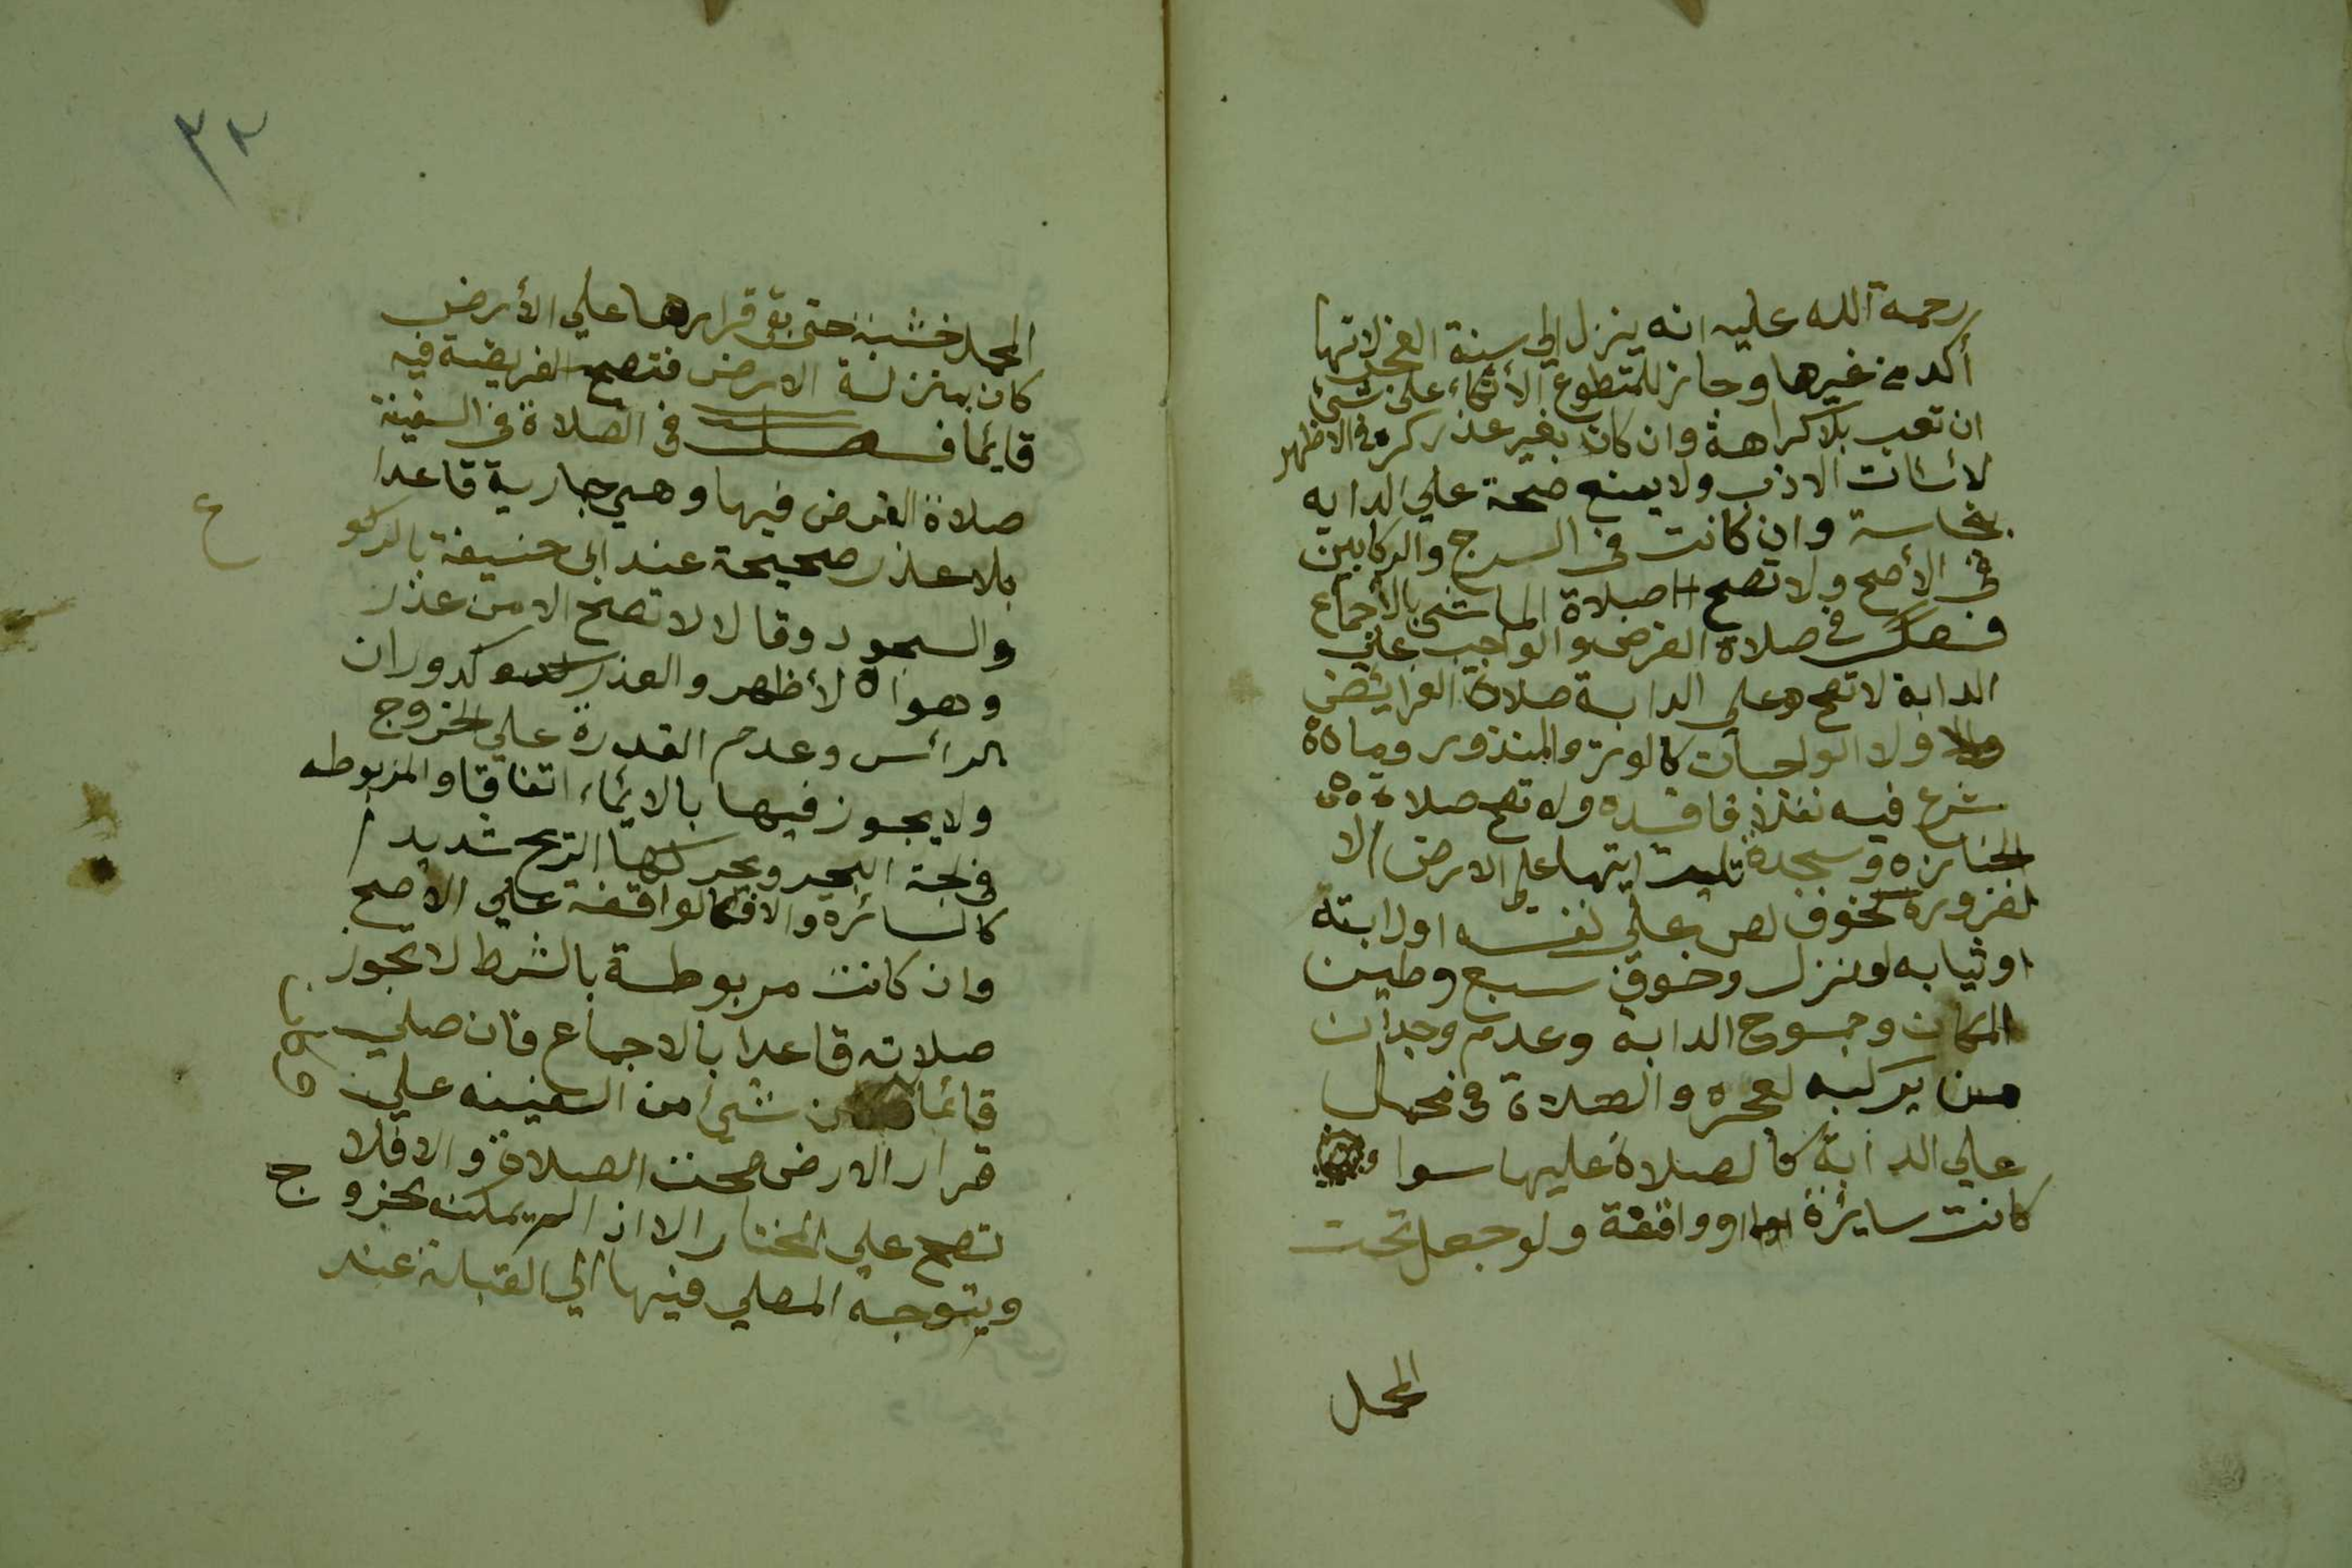 رحمة الله عليه انه ينزل الي سنة الفجر لانها
أكد من غيرها وجاز للمتطوع الأتكاء على شئ
ان تعب بلا كراهة وان كان بغير عذر كره في الاظهر
لأسات الادب ولا يمنع صحة علي الدابه
نجاسة وان كانت في السرج والركابين
في الأصح ولا تصح صلاة الماشي بالأجماع
فصل في صلاة الفرض والواجب علي
الدابة لا تصح علي الدابة صلاة الفرايض
ولا الواجبات كالوتر والمنذور وما
شرع فيه نفلا فافسده ولا تصح صلاة
الجنازه وسجدة تليت ايتها علي الارض الا
لضرورة كخوف لص علي نفسه او دابته
او ثيابه لو نزل وخوف سبع وطين
المكان وجموح الدابة وعدم وجدان
من يركبه لعجزه والصلاة في محمل
علي الدابة كالصلاة عليها سوا
كانت سايرة او واقفة ولو جعل تحت
المحمل
٣٢
المحمل خشبة حتي بقي قرارها علي الأرض
كان بمنزلة الارض فتصح الفريضة فيه
قايما فصل في الصلاة في السفينة
صلاة الفرض فيها وهي جارية قاعدا
بلا عذر صحيحة عند ابي حنيفة بالركو
ع
والسجود وقالا لا تصح الا من عذر
وهو الأظهر والعذر كدوران
الرأس وعدم القدرة علي الخروج
ولا يجوز فيها بالايماء اتفاقا والمربوطه
في لجة البحر ويحركها الريح شديدا
كالسائره والا فكالواقفة علي الاصح
وان كانت مربوطة بالشط لا تجوز
صلاته قاعدا بالاجماع فان صلي
قائما شئ من السفينه علي
قرار الارض صحت الصلاة والا فلا
تصح علي المختار الا اذا لم يمكنه لخروج
ويتوجه المصلي فيها الي القبلة عند